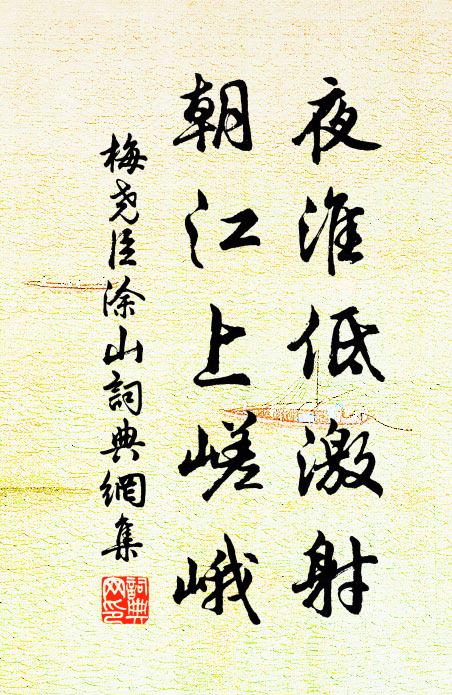 夜淮低激射
朝江上嵯峨
梅尧臣涂山詞典網集
詞典网印